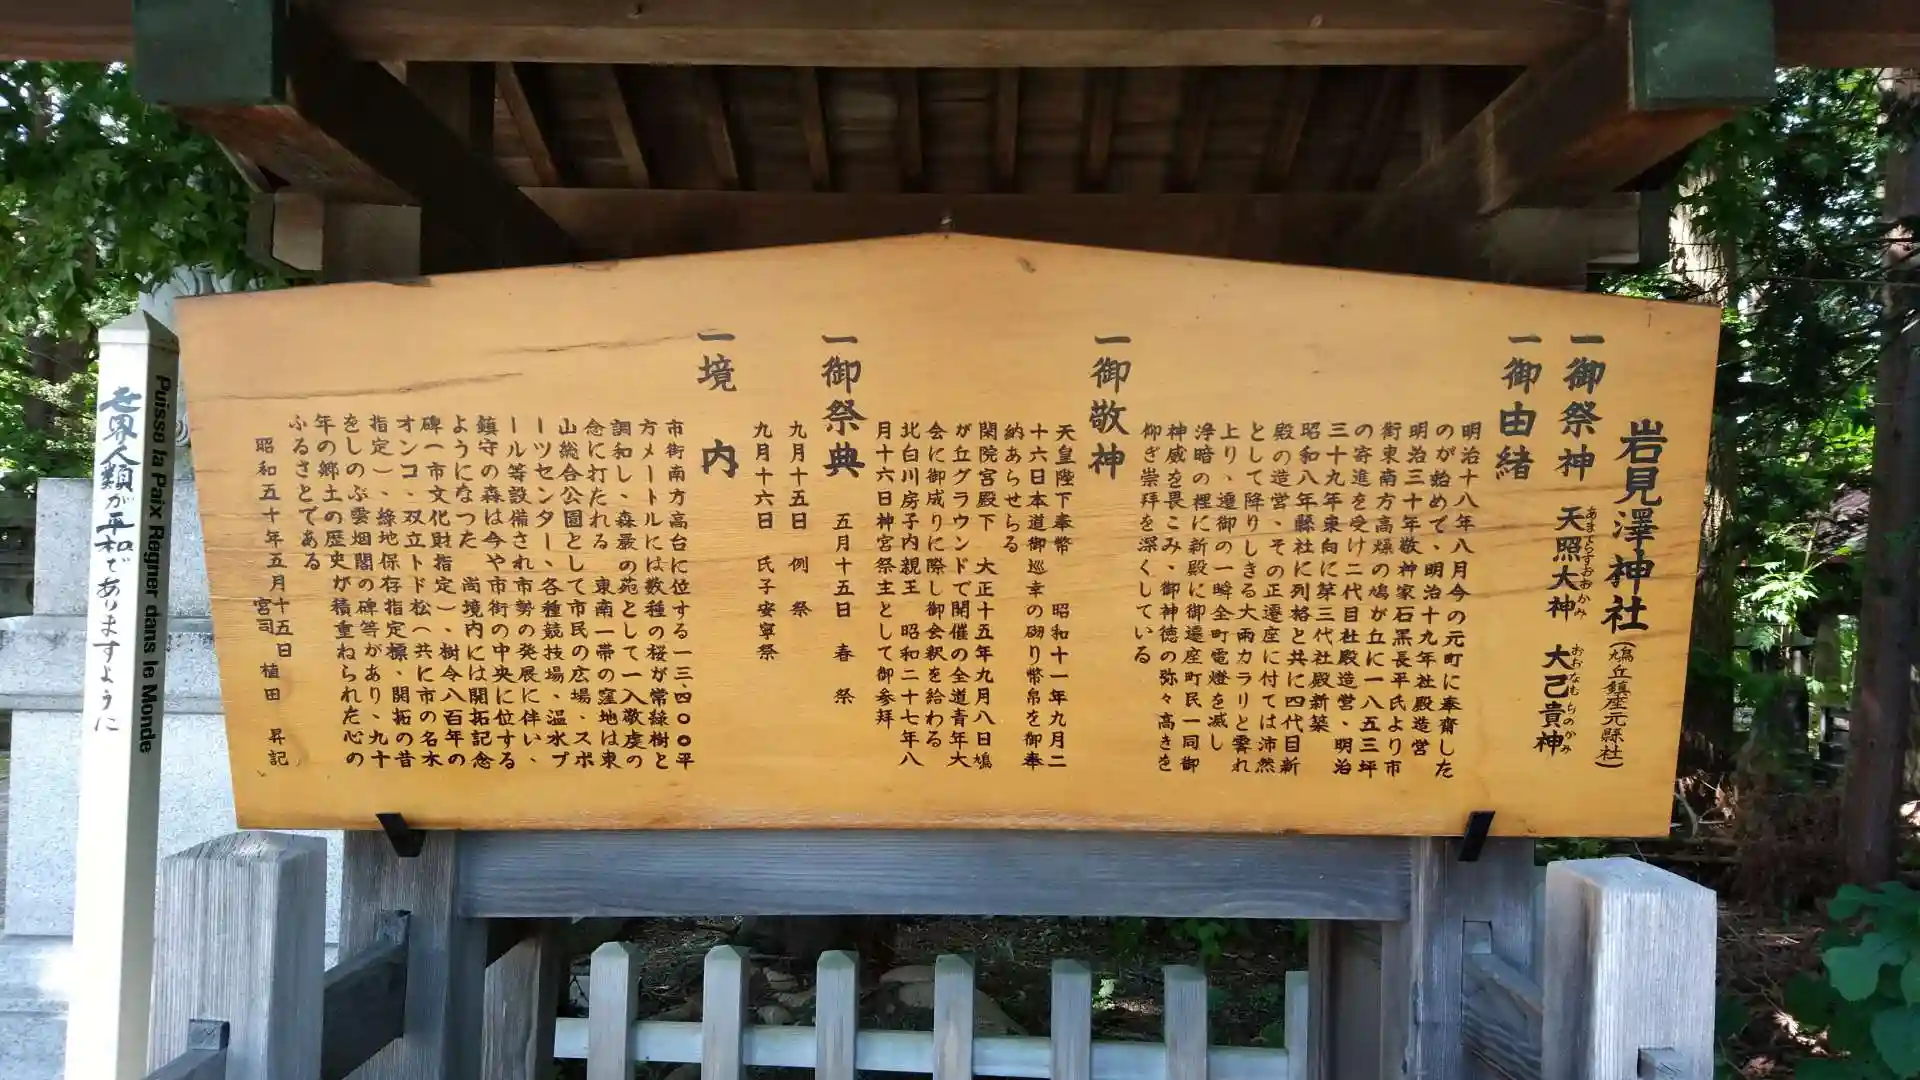 岩見澤神社(鳩丘鎮座元縣社)
一御祭神 天照大神 大己貴神
あまてらすおおかみ おおなむちのかみ
一御由緒
明治十八年八月今の元町に奉斎した
のが始めで、明治十九年社殿造営
明治三十年敬神家石黒長平氏より市
街東南方高燥の鳩が丘に一八五三坪
の寄進を受け二代目社殿造営、明治
三十九年東向に第三代社殿新築
昭和八年縣社に列格と共に四代目新
殿の造営、その正遷座に付ては沛然
として降りしきる大雨カラリと霽れ
上り、遷御の一瞬全町電燈を滅し
浄暗の裡に新殿に御遷座町民一同御
神威を畏こみ、御神徳の弥々高きを
仰ぎ崇拜を深くしている
一御敬神
天皇陛下奉幣 昭和十一年九月二
十六日本道御巡幸の砌り幣帛を御奉
納あらせらる
閑院宮殿下 大正十五年九月八日鳩
が丘グラウンドで開催の全道青年大
会に御成りに際し御会釈を給わる
北白川房子内親王 昭和二十七年八
月十六日神宮祭主として御参拜
一御祭典 五月十五日 春祭
九月十五日 例祭
九月十六日 氏子安寧祭
一境内
市街南方高台に位する一三、四〇〇平
方メートルには数種の桜が常緑樹と
調和し、森厳の苑として一入敬虔の
念に打たれる 東南一帯の窪地は東
山総合公園として市民の広場、スポ
ーツセンター、各種競技場、温水プ
ール等設備され市勢の発展に伴い、
鎮守の森は今や市街の中央に位する
ようになった 尚境内には開拓記念
碑(市文化財指定)、樹令八百年の
オンコ、双立トド松(共に市の名木
指定)、緑地保存指定標、開拓の昔
をしのぶ雲烟閣の碑等があり、九十
年の郷土の歴史が積重ねられた心の
ふるさとである
昭和五十年五月十五日
宮司 植田 昇記
Puisse la Paix Regner dans le Monde
世界人類が平和でありますように